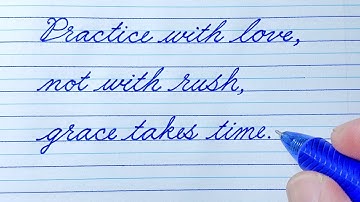 Practice with love,
not with rush,
grace takes time.